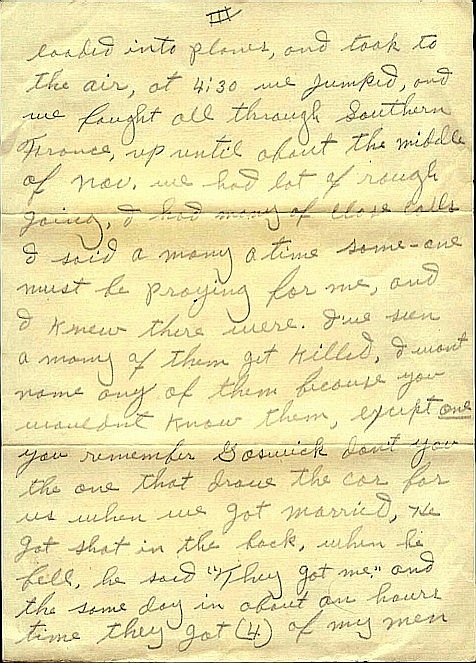 III
loaded into planes, and took to
the air, at 4:30 we jumped, and
we fought all through Southern
France, up until about the middle
of Nov. we had lot of rough
going, I had many of close calls
I said a many a time some-one
must be praying for me, and
I knew there were. I've seen
a many of them get killed, I wont
name any of them because you
wouldn't know them, except one
you remember Goswick don't you
the one that drove the car for
us when we got married, He
got shot in the back, when he
fell, he said "They got me." and
the same day in about an hours
time they got (4) of my men